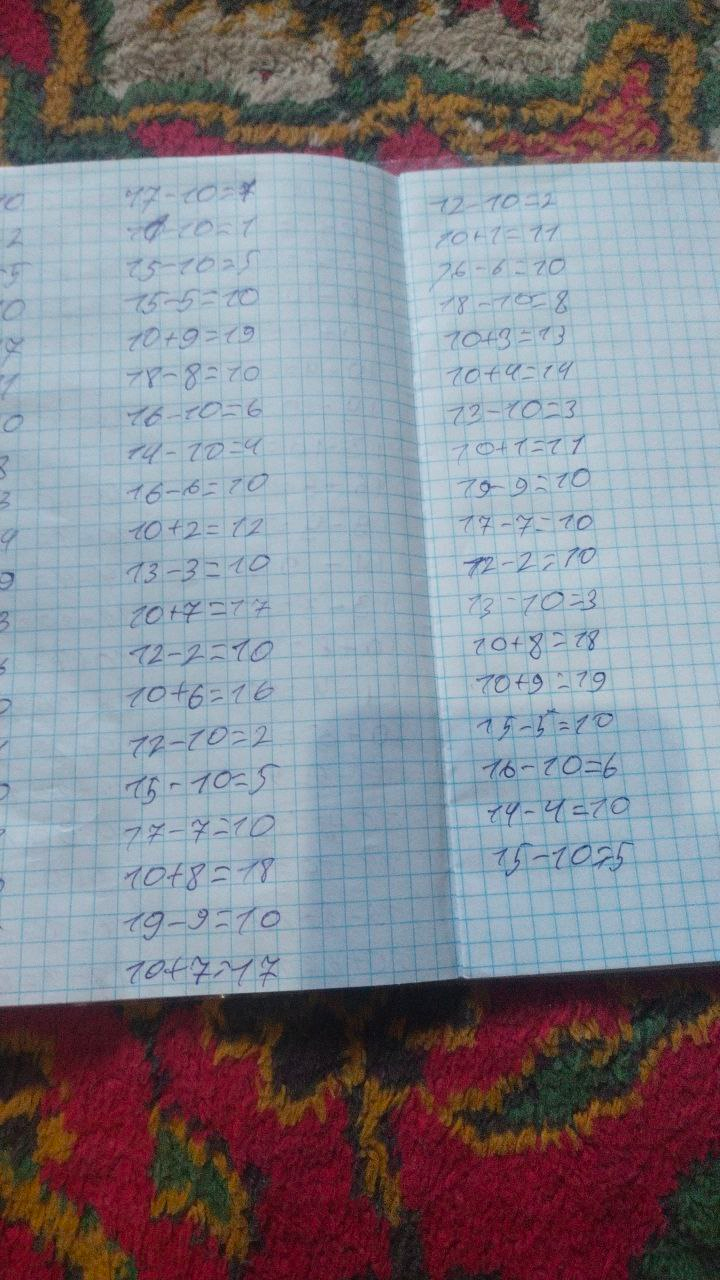 17-10=7
11-10=1
15-10=5
15-5=10
10+9=19
18-8=10
16-10=6
14-10=4
16-6=10
10+2=12
13-3=10
10+7=17
12-2=10
10+6=16
12-10=2
15-10=5
17-7=10
10+8=18
19-9=10
10+7=17
12-10=2
10+1=11
16-6=10
18-10=8
10+3=13
10+4=14
13-10=3
10+1=11
19-9=10
17-7=10
12-2=10
13-10=3
10+8=18
10+9=19
15-5=10
16-10=6
14-4=10
15-10=5